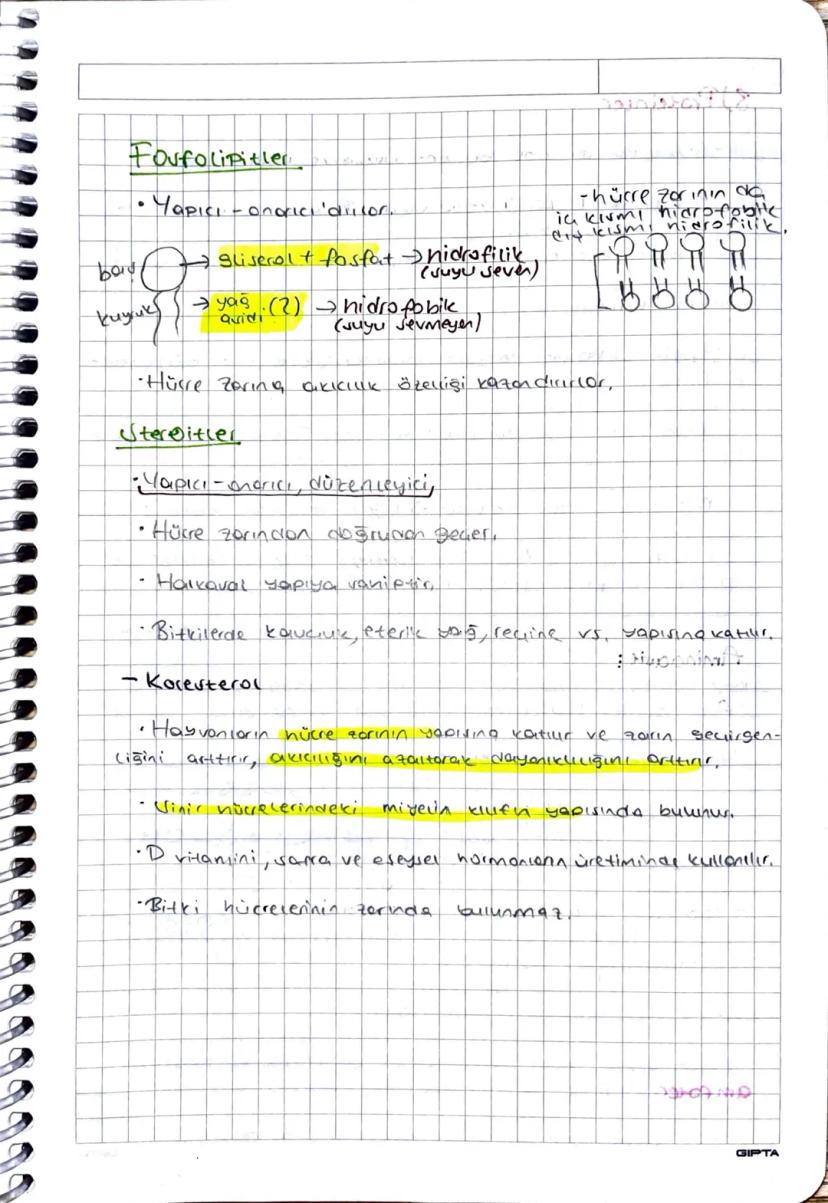 Fosfolipitler
• Yapıcı-onarıcı'dırlar.
-hücre zarının da
iç kısmı hidrofobik
dış kısmı hidrofilik.
baş → gliserol + fosfat → hidrofilik
(suyu seven)
kuyruk → yağ asidi (2) → hidrofobik
(suyu sevmeyen)
• Hücre zarına akıcılık özelliği kazandırırlar.
Steroitler
• Yapıcı-onarıcı, düzenleyici,
• Hücre zarından doğrudan geçer.
• Halkasal yapıya sahiptir.
• Bitkilerde kauçuk, eterik yağ, reçine vs. yapısına katılır.
- Kolesterol
• Hayvanların hücre zarının yapısına katılır ve zarın geçirgen-
liğini arttırır, akıcılığını azaltarak dayanıklılığını arttırır.
• Sinir hücrelerindeki miyelin kılıfın yapısında bulunur.
• D vitamini, safra ve eşeysel hormonların üretiminde kullanılır.
• Bitki hücrelerinin zarında bulunmaz.
GIPTA